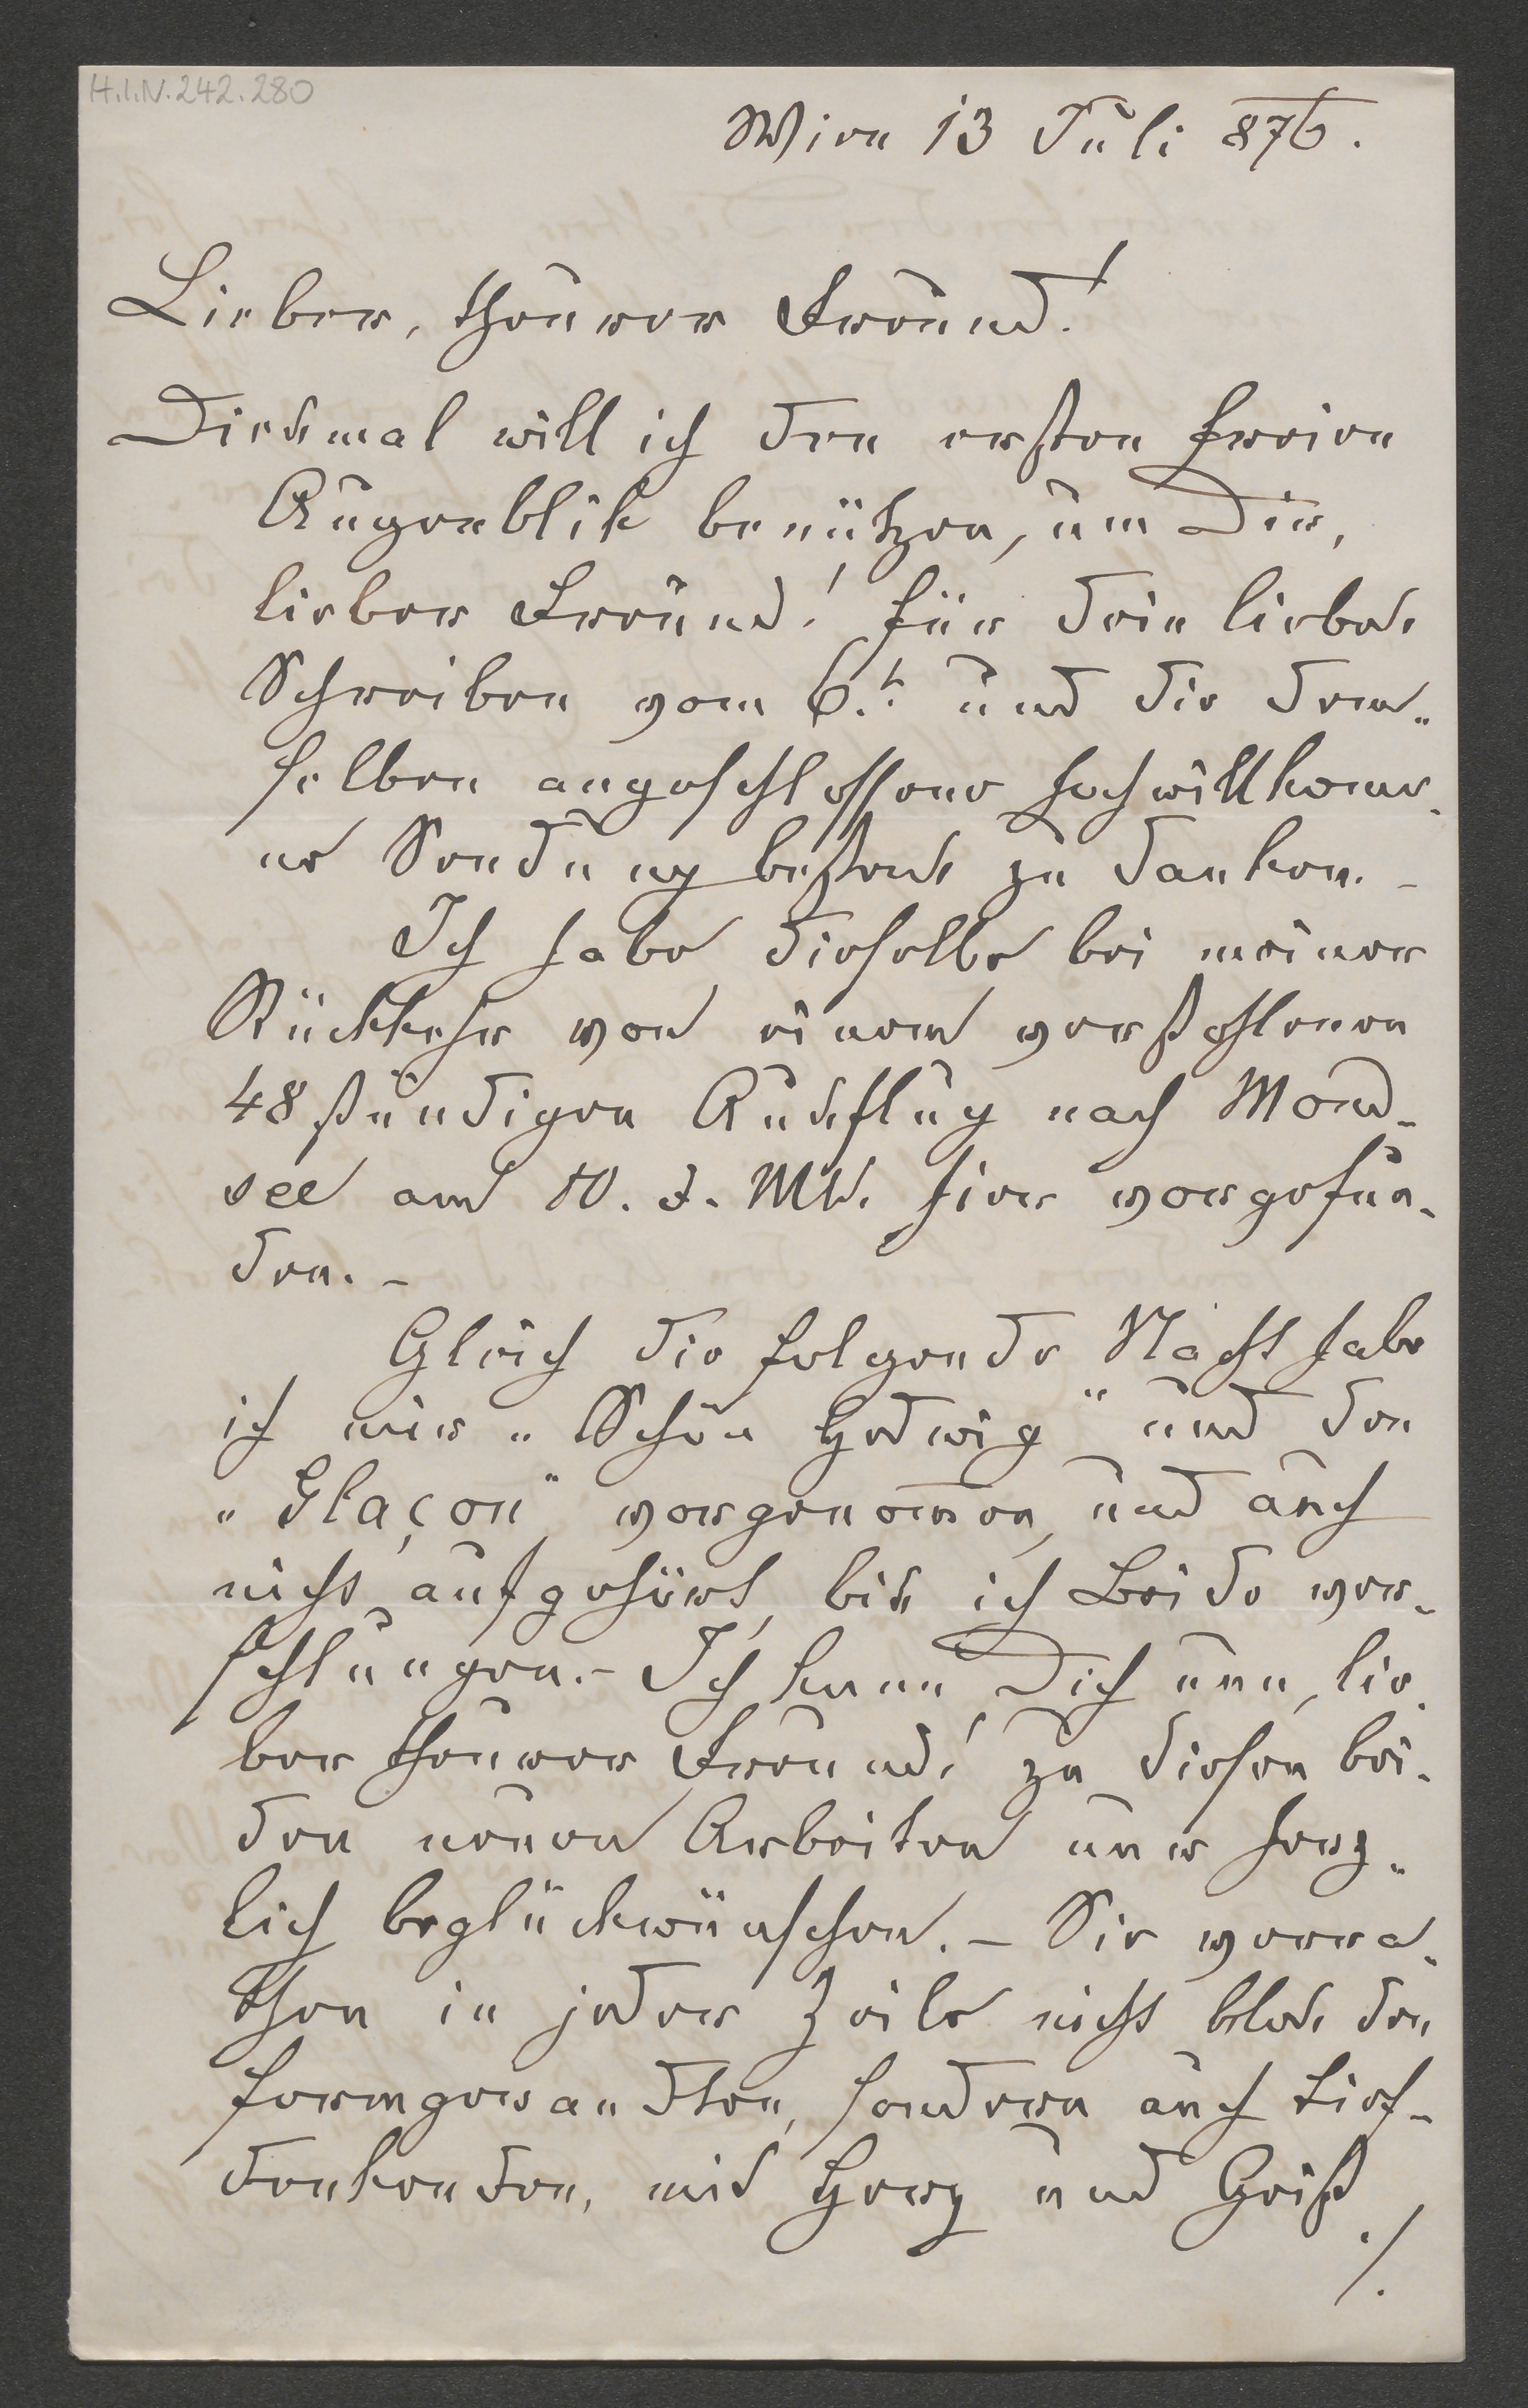 H.I.N. 242.280
Wien 13 Juli 876.
Lieber, theurer Freund!
Diesmal will ich den ersten freien
Augenblik benützen, um Dir,
lieber Freund! für dein liebes
Schreiben vom 6.t und die dem-
selben angeschlossene hochwillkome-
ne Sendung bestens zu danken. –
Ich habe dieselbe bei meiner
Rückkehr von einem verstohlenen
48 stündigen Ausflug nach Mond-
see am 10. d. Mts. hier vorgefun-
den. –
Gleich die folgende Nacht habe
ich mir „Schön Hedwig" und den
„Glaçon" vorgenom̅en, und auch
nicht aufgehört, bis ich Beide ver-
schlungen. – Ich kann Dich nun, lie-
ber theurer Freund! zu diesen bei-
den neuen Arbeiten nur herz-
lich beglückwünschen. – Sie verra-
then in jeder Zeile nicht blos den
formgewandten, sondern auch tief-
denkenden, mit Herz und Geist
./.